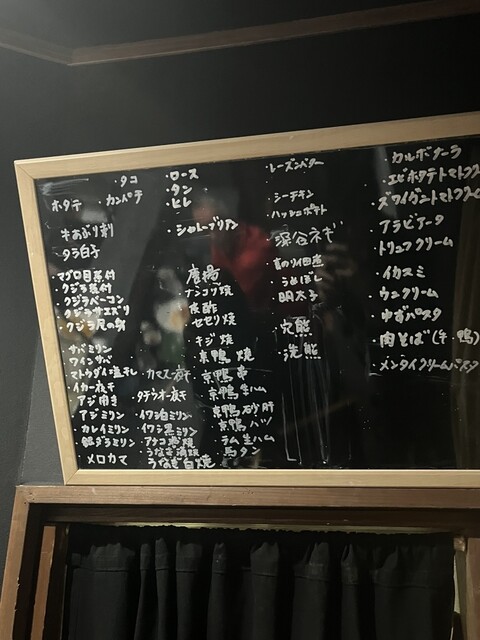 ・タコ
ホタテ ・カンパチ
牛あぶり刺
タラ白子
・マグロ目茶付
・クジラベーコン
・クジラサエズリ
・サバミリン
・ワインサバ
・マトウダイ塩干し ・カマス一夜干
・イカ一夜干 タチウオ一夜干
・アジ開き
・アジミリン ・イワシ泊ミリン
・カレイミリン ・イワシ黒ミリン
・銀ダラミリン
メロカマ うなぎ白焼
・ロース
・タン
・ヒレ
・シャトーブリアン
・唐揚
ナンコツ焼
・セセリ焼
・キジ焼
・京鴨 焼
・京鴨 串
・京鴨 生ハム
・京鴨 砂肝
・京鴨 ハツ
・ラム生ハム
・馬タン
・レーズンバター
・シーチキン
・ハッシュポテト
・深谷ネギ
・真のり佃煮
・うめぼし
・明太子
・カルボナーラ
・エビホタテトマトクリ
・ズワイガニトマトクリ
・アラビアータ
・トリュフクリーム
・イカスミ
・ウニクリーム
・ゆずパスタ
・肉そば(牛・鴨)
・メンタイクリームパスタ